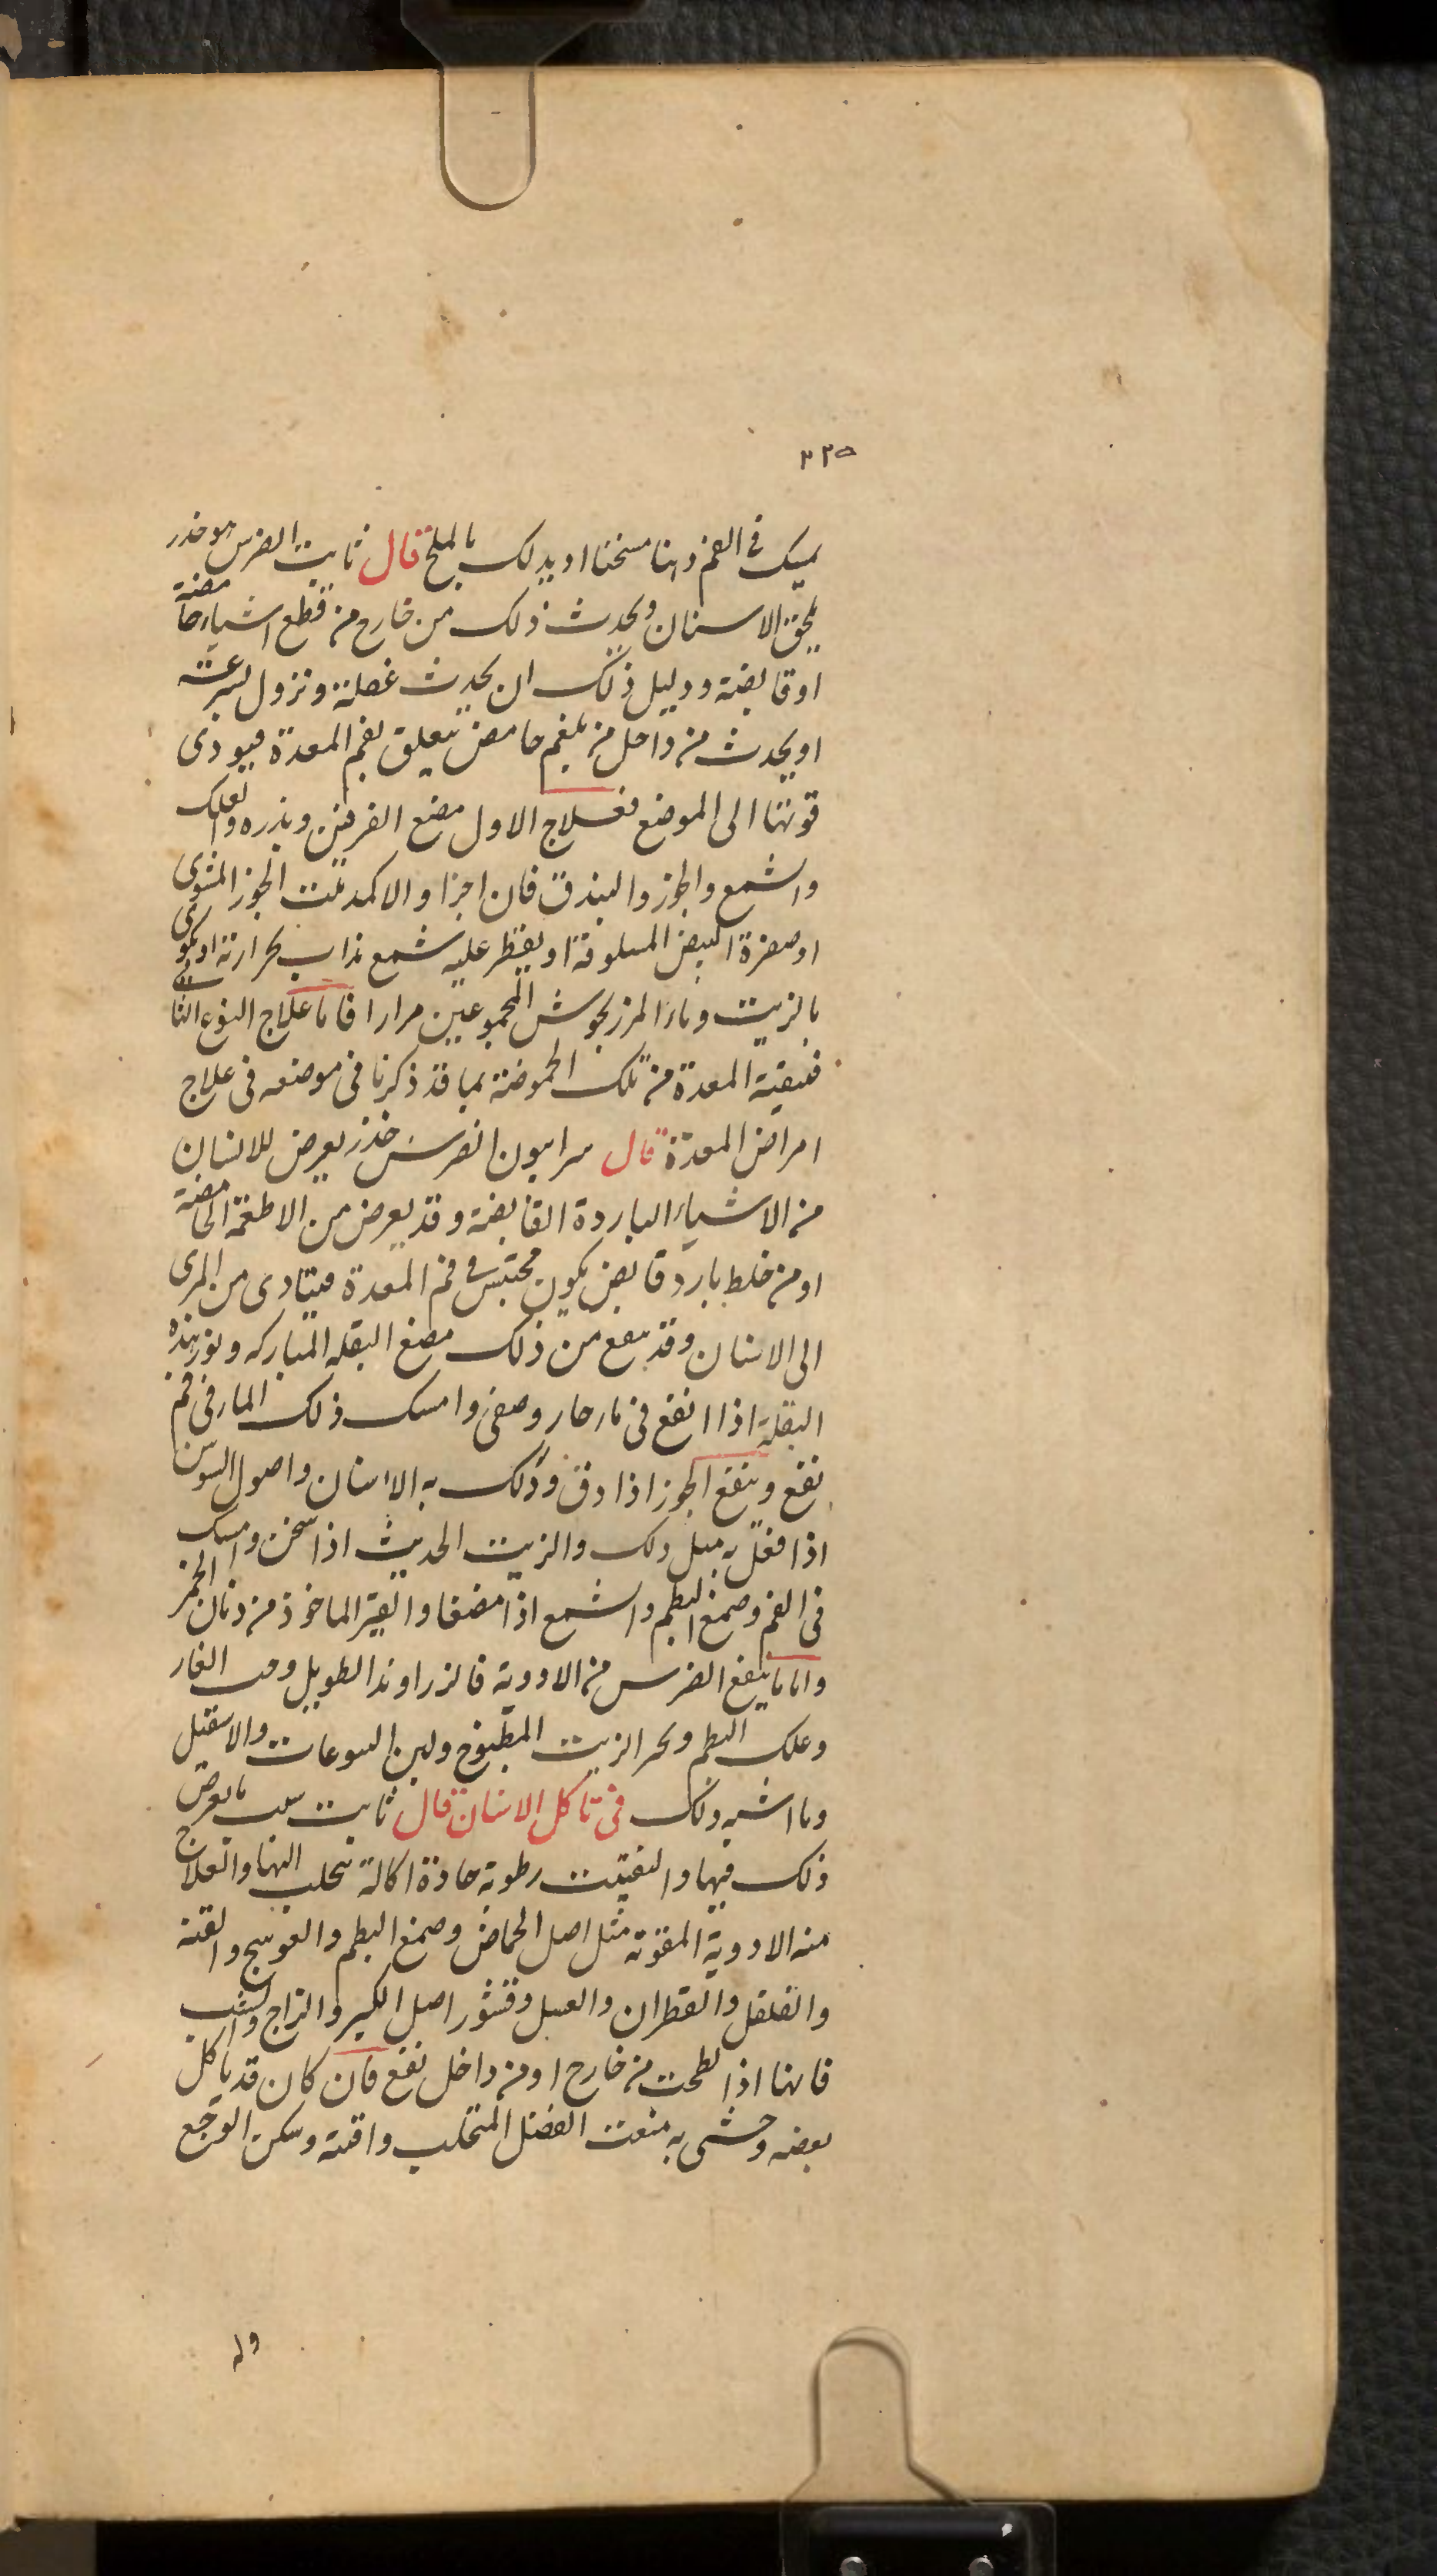 ٢٢٥
يمسك في الفم دهنا مسخنا او يدلك بالملح قال ثابت الضرس هو خدر
يلحق الاسنان ويحدث ذلك من خارج من قطع اشياء حامضة
او قابضة ودليل ذلك ان يحدث غفلة وتزول بسرعة
او يحدث من داخل من بلغم حامض يتعلق بفم المعدة فيودى
قوتها الى الموضع فعلاج الاول مضغ الفرفين وبزره والعلك
والشمع والجوز والبندق فان اجزا والا كمد بلت الجوز المشوى
او صفرة البيض المسلوقة او يقطر عليه شمع مذاب بحرارته او يكوى
بالزيت وماء المرزنجوش المجموعين مرارا فاما علاج النوع الثانى
فتنقية المعدة من تلك الحموضة بما قد ذكرنا فى موضعه فى علاج
امراض المعدة قال سرابيون الضرس خدر يعرض للانسان
من الاشياء الباردة القابضة وقد يعرض من الاطعمة الحامضة
او من خلط بارد قابض يكون محتبس فى فم المعدة فيتادى من المرى
الى الاسنان وقد ينفع من ذلك مضغ البقلة المباركه وبزر هذه
البقلة اذا انقع فى ماء حار وصفى وامسك ذلك الماء فى فم
نفع وينفع الجوز اذا دق ودلك به الاسنان واصول السوسن
اذا فعل به مثل ذلك والزيت الحديث اذا سخن وامسك
فى الفم وصمغ البطم والشمع اذا مضغا والقير الماخوذ من دنان الخمر
واما ما ينفع الضرس من الادوية فالزراوند الطويل وحب الغار
وعلك البطم وعكر الزيت المطبوخ ولبن اليتوعات والاسقيل
وما اشبه ذلك فى تاكل الاسنان قال ثابت سبب ما يعرض
ذلك فيها والتفتت رطوبة حادة اكالة تتحلب اليها والعلاج
منه الادوية المقوية مثل اصل الحماض وصمغ البطم والعوسج والقنة
والفلفل والقطران والعسل وقشور اصل الكبر والزاج والشب
فانها اذا لطخت من خارج او من داخل نفع فان كان قد تاكل
بعضه وحشى به منعت الفضل المتحلب واقنة وسكن الوجع
وله